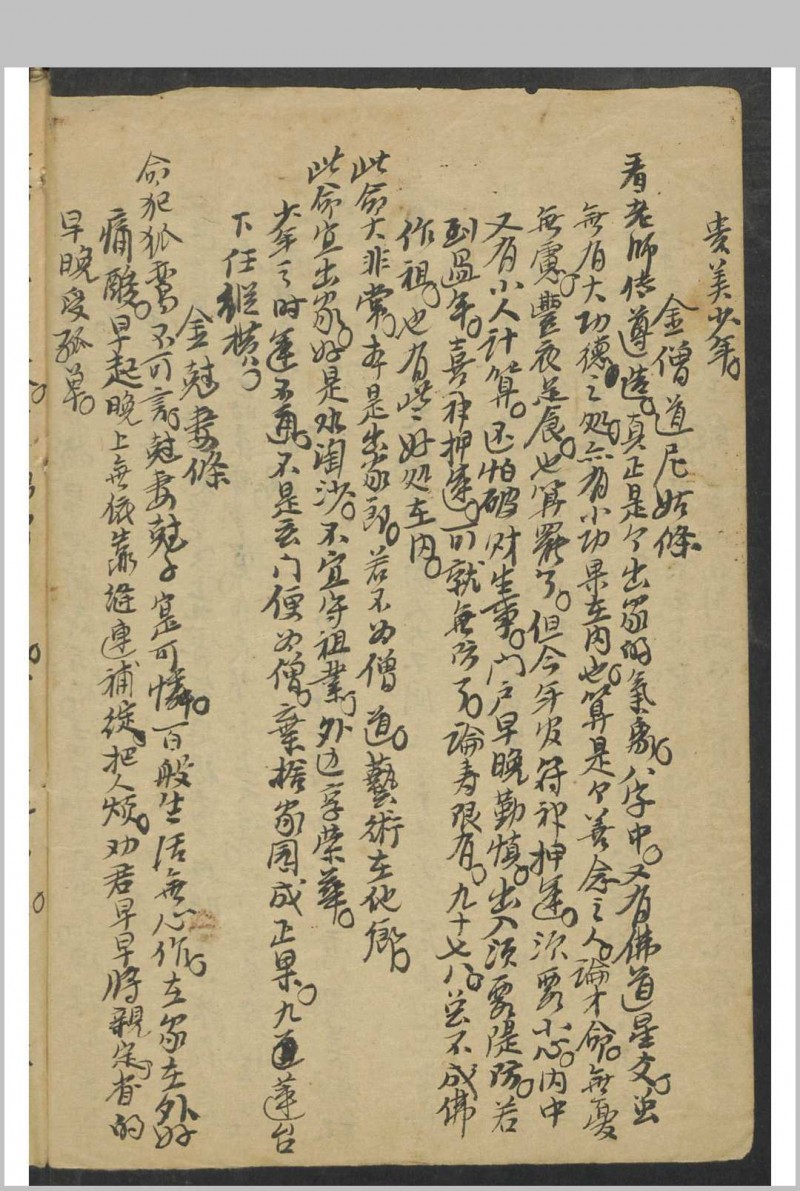 美少年。
金僧道尼姑條
看老師傅尊造。真正是个出家的氣象。八字中。又有佛道星文。虽
無有大功德之処。亦有小功果在內。也算是个善念之人。論才命。無憂
無慮。豐衣足食。也算罷了。但今年官符神押運。須要小心。內中
又有小人計算。还怕破财生事。门户早晚勤慎。出入須要隄防。若
到過年。喜神押運。可就無防了。論寿限有。九十七八。总不成佛
作祖。也有些好処在內。
此命大非常。本是出家郎。若不为僧道。藝術在他鄉。
此命宜出家。好是水淘沙。不宜守祖業。外边享荣華。
少年之时運不通。不是玄门便为僧。棄捨家园成正果。九蓮台
下任縱横。
金尅妻條
命犯孤鸞不可言。尅妻尅子寔可憐。百般生活無心作。在家在外好
痛酸。早起晚上無依靠。縫連補綻把人烦。劝君早早将親定。省的
早晚受孤单。